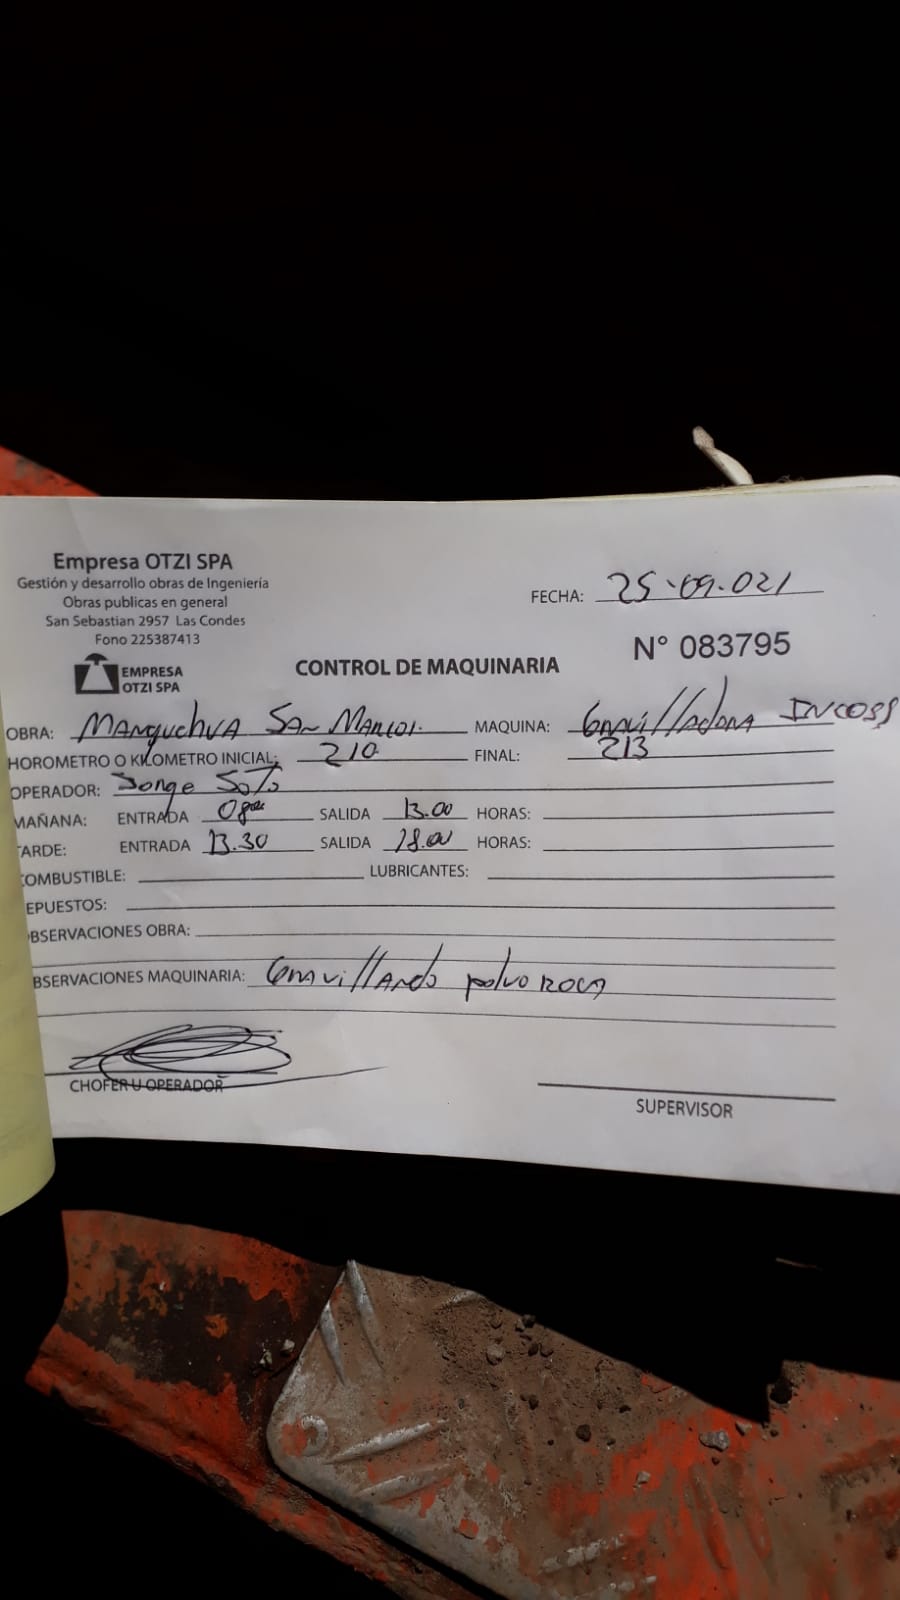 Empresa OTZI SPA
Gestión y desarrollo obras de Ingeniería
Obras publicas en general
San Sebastian 2957 Las Condes
Fono 225387413
EMPRESA
OTZI SPA
FECHA: 25-09-021
N° 083795
CONTROL DE MAQUINARIA
OBRA: Manquehua San Marcos. MAQUINA: Gravilladora INCO
HOROMETRO O KILOMETRO INICIAL: 210 FINAL: 213
OPERADOR: Jorge Soto
MAÑANA: ENTRADA 08 SALIDA 13.00 HORAS:
TARDE: ENTRADA 13.30 SALIDA 18.00 HORAS:
COMBUSTIBLE: LUBRICANTES:
EPUESTOS:
BSERVACIONES OBRA:
BSERVACIONES MAQUINARIA: Gravillando polvo roca
CHOFER U OPERADOR
SUPERVISOR